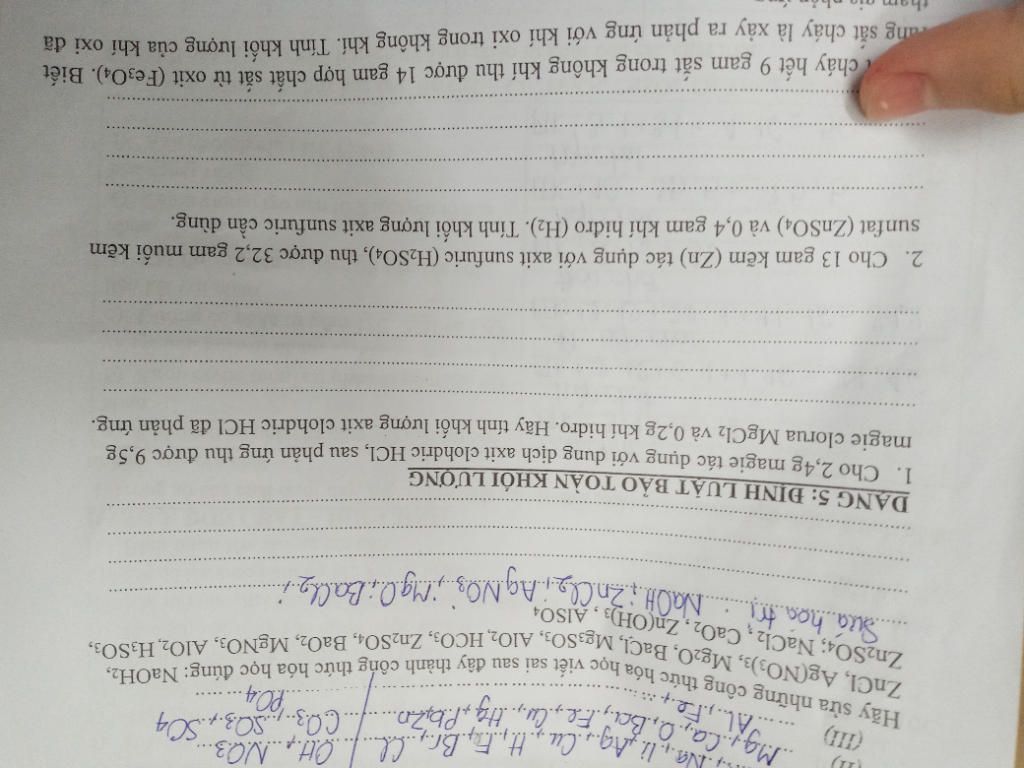 (II)
Mg, Ca,
OH, NO3
CO3, SO3, SO4
PO4
(III)
Al, Fe,
Hãy sửa những công thức hóa học viết sai sau đây thành công thức hóa học đúng: NaOH₂,
ZnCl, Ag(NO₃)₃, Mg₂O, BaCl, Mg₃SO₃, AlO₂, HCO₃, ZnSO₄, BaO₂, MgNO₃, AlO₂, H₃SO₃,
Zn₂SO₄; NaCl₂; CaO₂, Zn(OH)₃, AlSO₄
Sửa hoá trị: NaOH; ZnCl₂; AgNO₃; MgO; BaCl₂;
DẠNG 5: ĐỊNH LUẬT BẢO TOÀN KHỐI LƯỢNG
1. Cho 2,4g magie tác dụng với dung dịch axit clohdric HCl, sau phản ứng thu được 9,5g
magie clorua MgCl₂ và 0,2g khí hidro. Hãy tính khối lượng axit clohdric HCl đã phản ứng.
2. Cho 13 gam kẽm (Zn) tác dụng với axit sunfuric (H₂SO₄), thu được 32,2 gam muối kẽm
sunfat (ZnSO₄) và 0,4 gam khí hidro (H₂). Tính khối lượng axit sunfuric cần dùng.
cháy hết 9 gam sắt trong không khí thu được 14 gam hợp chất sắt từ oxit (Fe₃O₄). Biết
rằng sắt cháy là xảy ra phản ứng với khí oxi trong không khí. Tính khối lượng của khí oxi đã
tham gia phản ứng